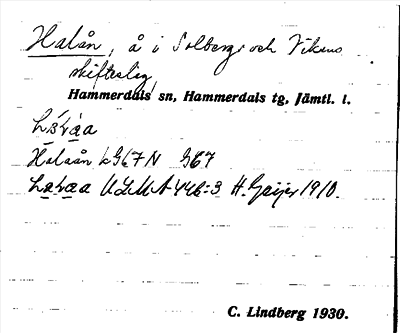 Halån, å i Solbergs och Vikens
skifteslag,
Hammerdals sn, Hammerdals tg, Jämtl. l.
Halaån G67N G67
ULMA 446:3 H. Geijer 1910.
C. Lindberg 1930.